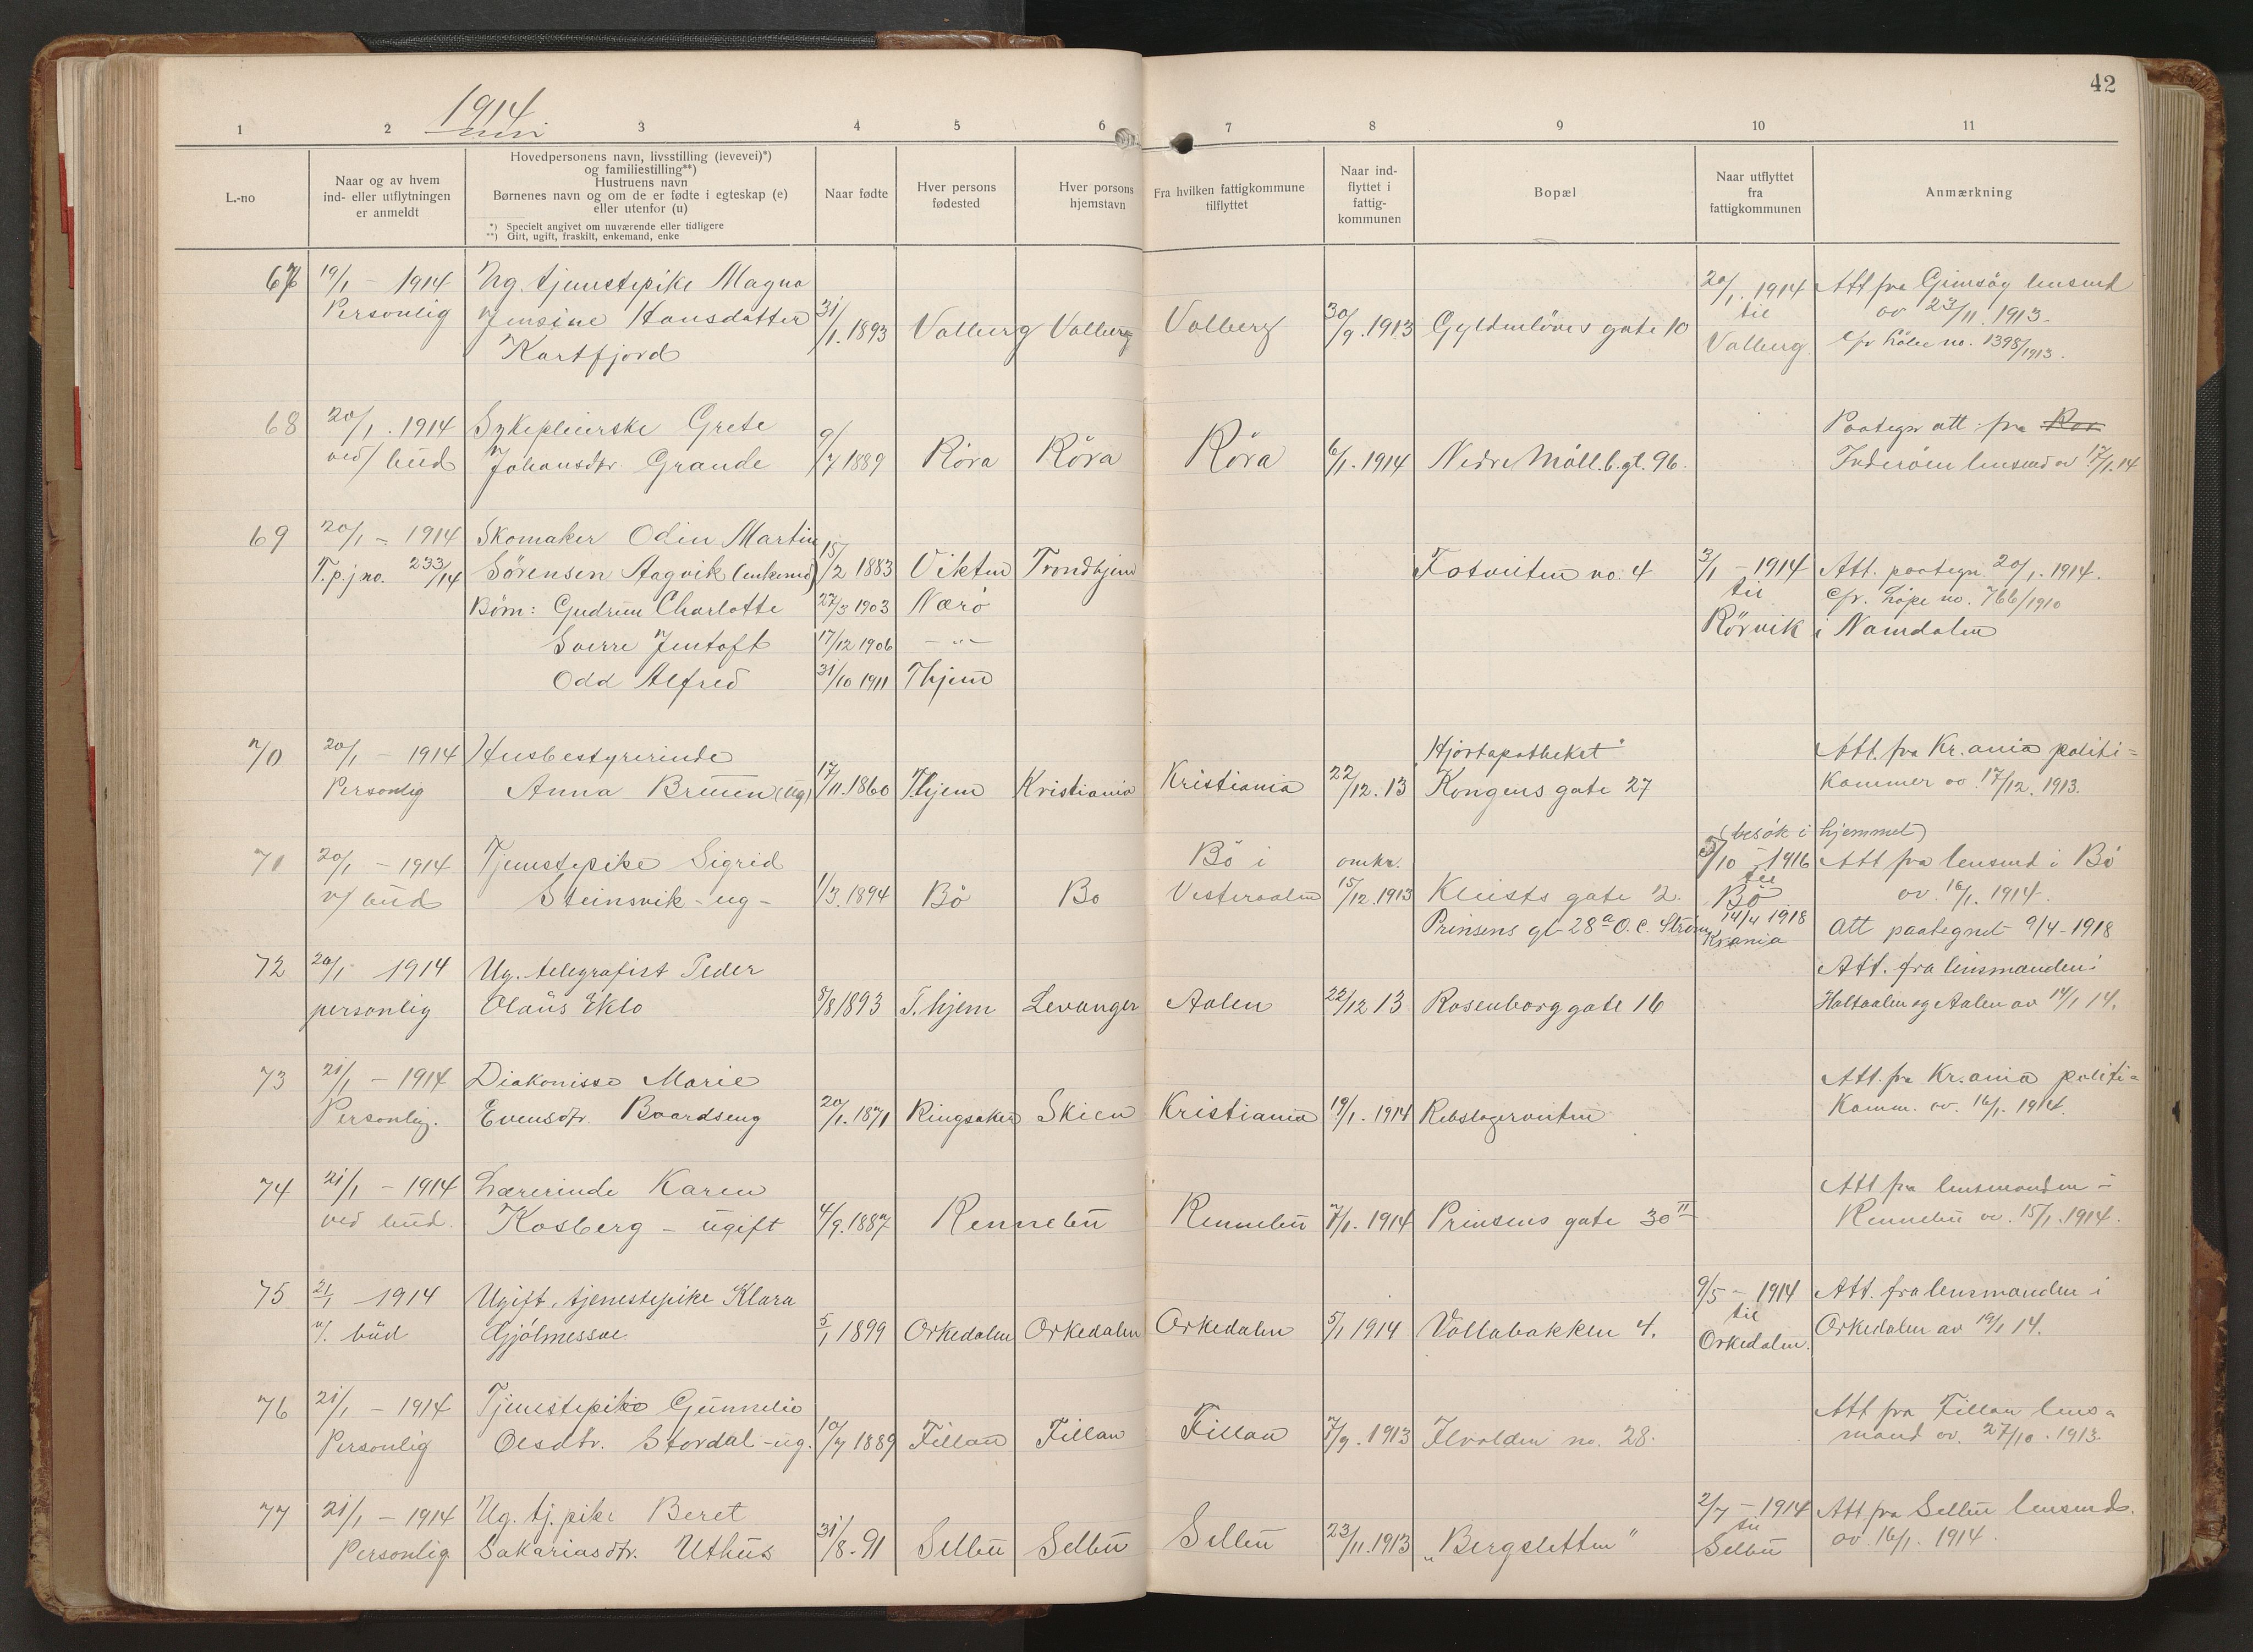 42
1914
1 2 3 4 5 6 7 8 9 10 11
L.-no
Naar og av hvem
ind- eller utflytningen
er anmeldt
Hovedpersonens navn, livsstilling (levevei)*)
og familiestilling**)
Hustruens navn
Børnenes navn og om de er fødte i egteskap (e)
eller utenfor (u)
*) Specielt angivet om nuværende eller tidligere
**) Gift, ugift, fraskilt, enkemand, enke
Naar fødte
Hver persons
fødested
Hver porsons
hjemstavn
Fra hvilken fattigkommune
tilflyttet
Naar ind-
flyttet i
fattig-
kommunen
Bopæl
Naar utflyttet
fra
fattigkommunen
Anmærkning
67 19/1 - 1914 Ug. tjenestepike Magna 20/1. 1914 Att fra Gimsøy lensmd
Personlig Jensine Hansdatter 31/1. 1893 Valberg Valberg Valberg 30/9. 1913 Gyldenløves gate 10 til av 23/11. 1913.
Kartfjord Valberg. cfr. Løpe no. 1398/1913.
68 20/1. 1914 Sykepleierske Grete Paategn att. fra Ror
ved bud Johansdtr. Grande 9/7 1889 Röra Röra Röra 6/1. 1914 Nedre Möll.b.gt. 96. Inderöen lensmd av 17/1. 14
69 20/1 - 1914 Skomaker Odin Martin
T.p.j no. 233/14 Sörensen Aagvik (enkemd) 15/2 1883 Vikten Trondhjem Totveiten no. 4 3/1 - 1914 Att. paategn. 20/1. 1914.
Börn: Gudrun Charlotte 27/3 1903 Nærö til cfr. Löpe no. 766/1910
Sverre Jentoft 17/12 1906 - " - Rörvik i Namdalen
Odd Alfred 31/10 1911 Thjem
70 20/1 - 1914 Husbestyrerinde Hjortapotheket" Att. fra Kr.ania politi=
Personlig Anna Bruun (ug) 17/11. 1860 T.hjem Kristiania Kristiania 22/12. 13 Kongens gate 27 kammer av 17/12. 1913.
(besök i hjemmet)
71 20/1 - 1914 Tjenestepike Sigrid Bö i omkr. 3/10 - 1916 Att fra lensmd i Bö
v/ bud Steinsvik - ug - 1/3. 1894 Bö Bo Vesteraalen 15/12. 1913 Kleists gate 2. til Bö av 16/1. 1914.
Prinsens gt 28a O. C. Ström 14/4 1918 Krania Att paategnet 9/4-1918
72 20/1 1914 Ug. telegrafist Peder Att. fra lensmanden i
personlig Olaus Eklo 8/8 1893 T.hjem Levanger Aalen 22/12 13 Rosenborg gate 16 Holtaalen og Aalen av 14/1 14.
73 21/1 - 1914 Diakonisse Marie Att. fra Kr.ania politi=
Personlig. Evensdtr. Baardseng 20/1. 1871 Ringsaker Skien Kristiania 19/1. 1914 Rebslagerveiten Kamm. av. 16/1. 1914.
74 21/1 - 1914 Lærerinde Karen Att fra lensmanden i
ved bud. Kosberg - ugift 4/9. 1887 Rennebu Rennebu 7/1. 1914 Prinsens gate 30 II Rennebu av. 15/1. 1914.
75 21/1 - 1914 Ugift. tjenestepike Klara 9/5 - 1914 Att. fra lensmanden i
v/. bud Gjölmessæ 5/1 1899 Orkedalen Orkedalen Orkedalen 5/1 1914 Vollabakken 4. til Orkedalen. Orkedalen av 19/1 14.
76 21/1 - 1914 Tjenestepike Gunnelie Att fra Fillan lens=
Personlig Olsdtr. Stordal - ug. 10/7 1889 Fillan Fillan Fillan 7/9. 1913 Ilvolden no. 28. mand av. 27/10. 1913.
77 21/1 - 1914 Ug. tj. pike Beret 2/7 - 1914 Att fra Selbu lensmd.
Personlig Sakariasdtr. Uthus 31/8-91 Selbu Selbu Selbu 23/11. 1913 „Bergsletten" til Selbu av. 16/1. 1914.